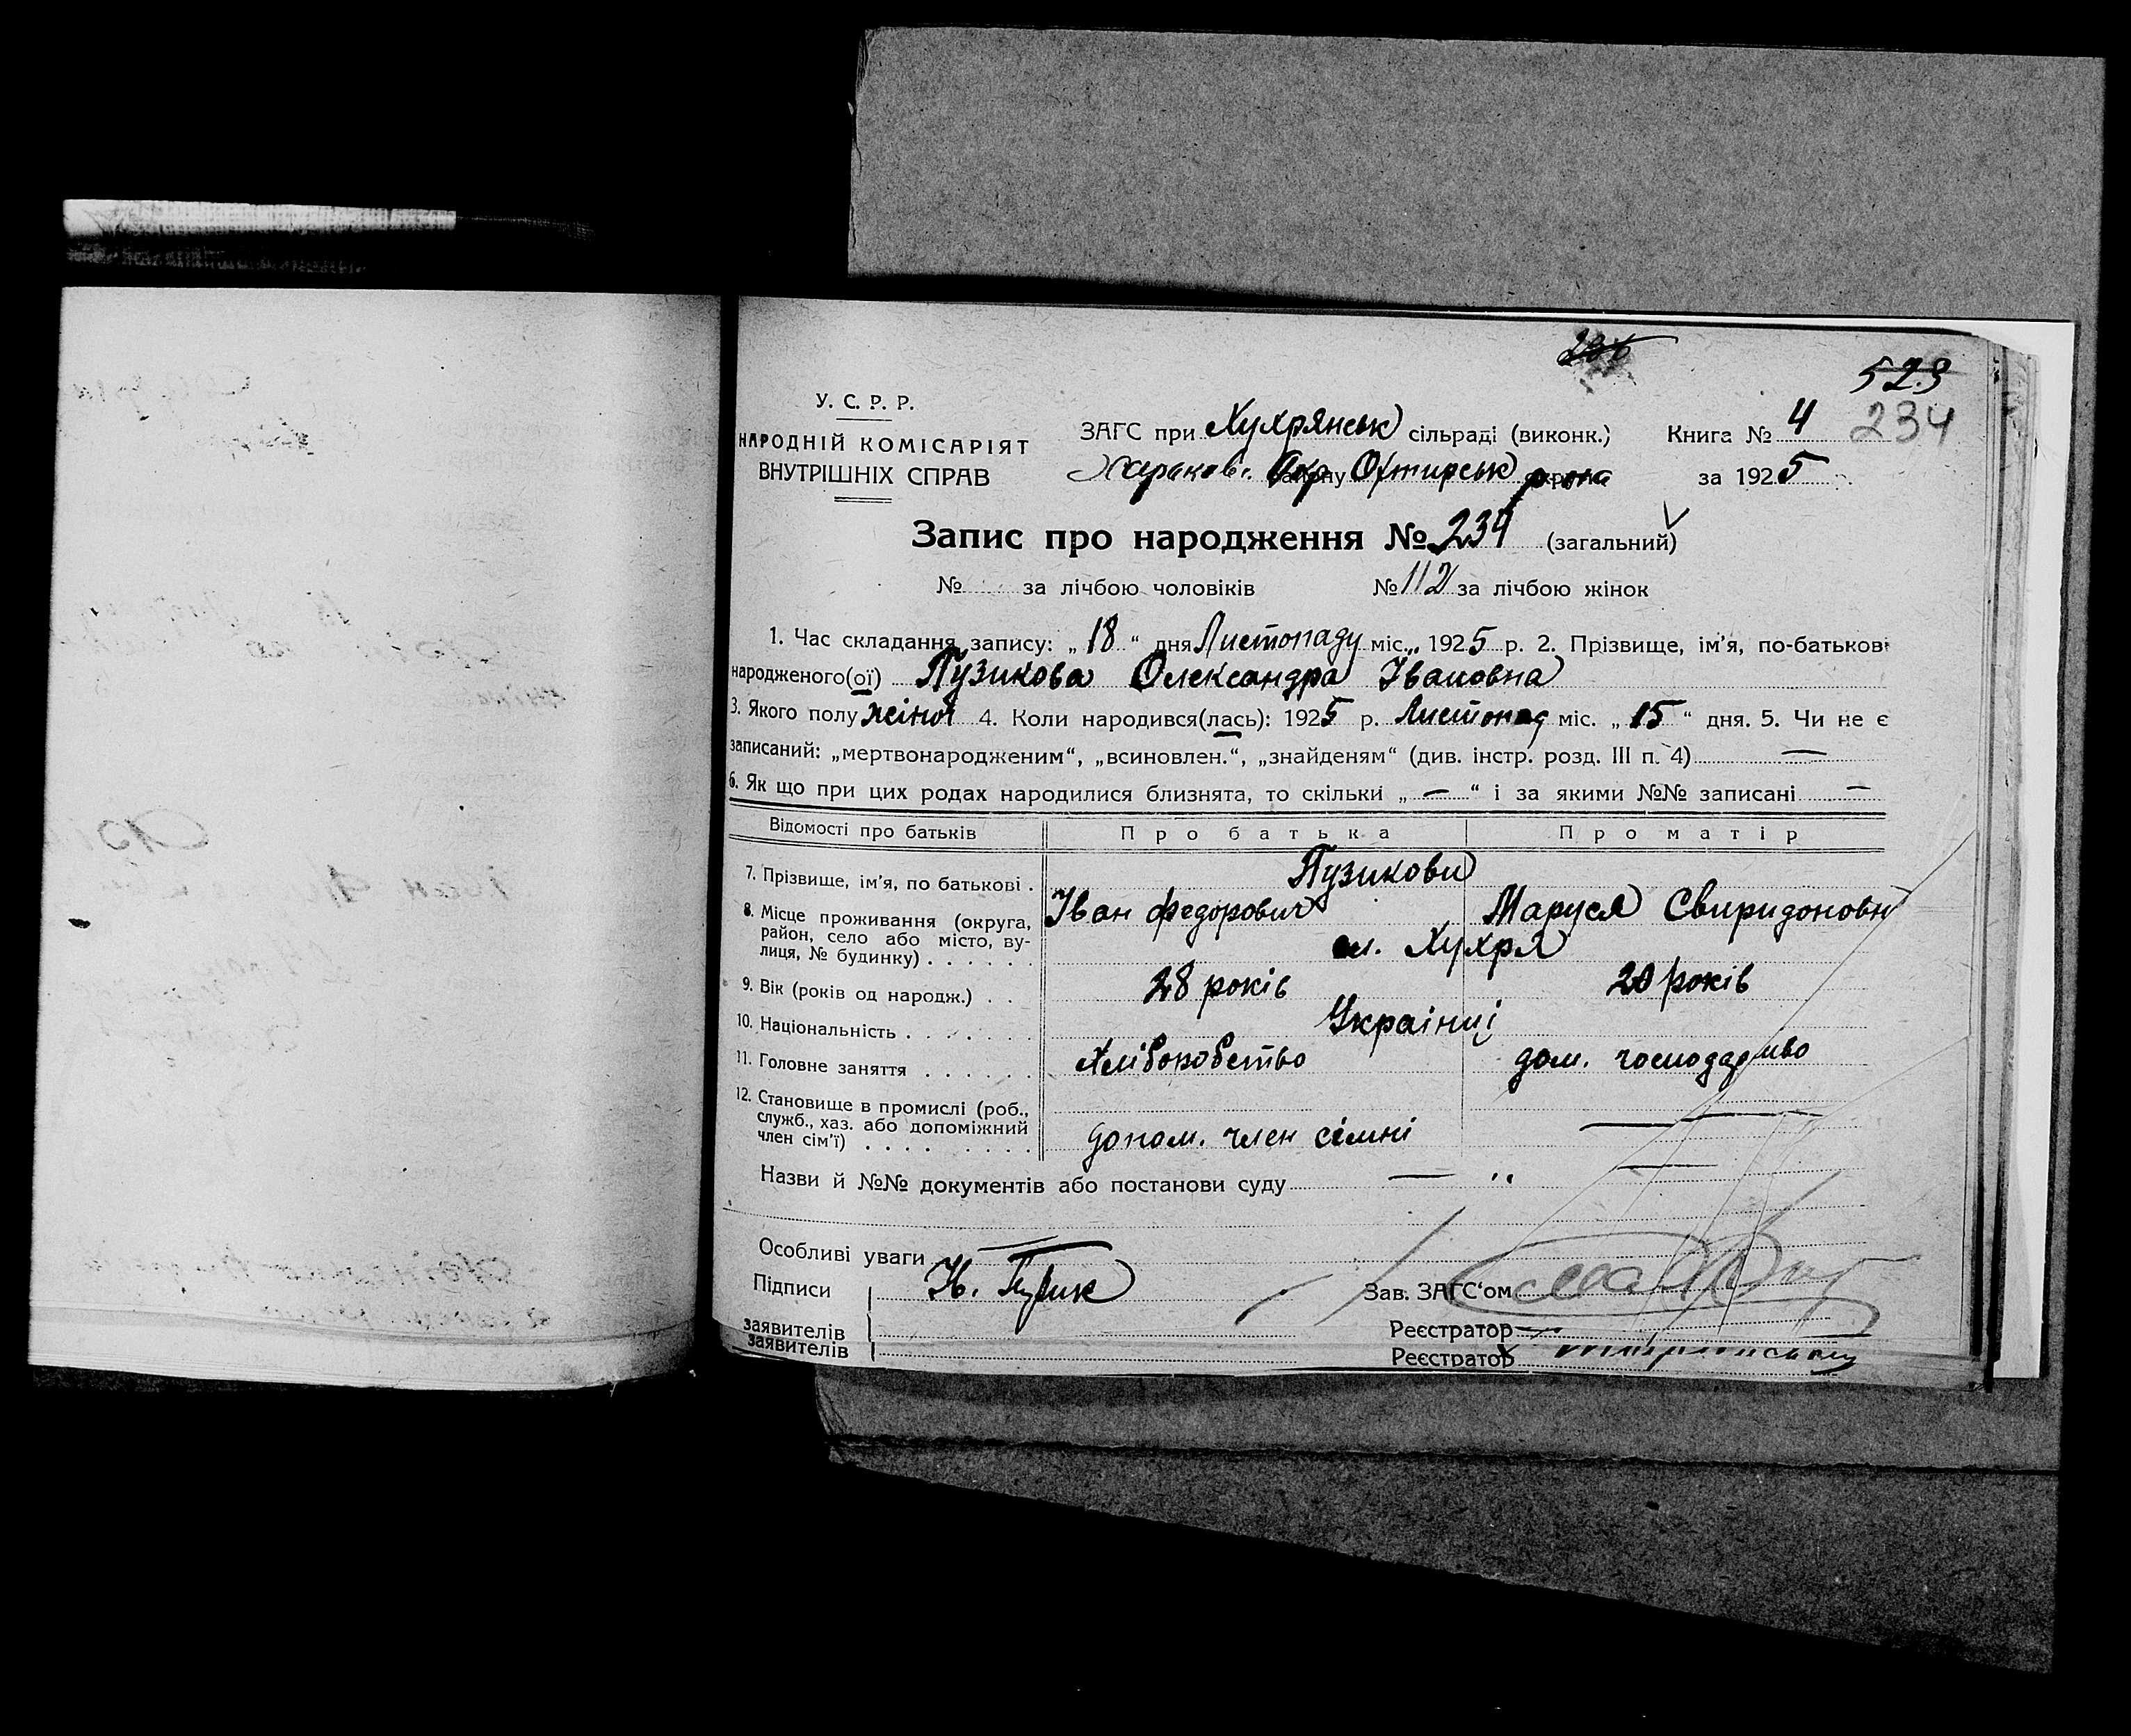 236
523
У. С. Р. Р.
НАРОДНІЙ КОМІСАРІЯТ
ВНУТРІШНІХ СПРАВ
ЗАГС при Хухрянськ сільраді (виконк.) Книга № 4 234
Харьков. Окр Охтирськ р-на за 1925
Запис про народження № 234 (загальний)
№ за лічбою чоловіків № 112 за лічбою жінок
1. Час складання запису: „ 18 “ дня Листопаду міс., 1925 р. 2. Прізвище, ім'я, по-батькові
народженого(ої) Пузикова Олександра Івановна
3. Якого полу жіноч 4. Коли народився(лась): 1925 р. Листопад міс. „ 15 “ дня. 5. Чи не є
записаний: „мертвонародженим“, „всиновлен.“, „знайденям“ (див. інстр. розд. III п. 4) —
6. Як що при цих родах народилися близнята, то скільки „ — “ і за якими №№ записані —
Відомості про батьків Про батька Про матір
7. Прізвище, ім'я, по батькові . Пузикови
Іван Федорович Маруся Свиридоновн
8. Місце проживання (округа,
район, село або місто, ву-
лиця, № будинку) . . . . . . сл. Хухря
9. Вік (років од народж.) . . 28 років 20 років
10. Національність . . . . . . . Українці
11. Головне заняття . . . . . . Хліборобство дом. господарство
12. Становище в промислі (роб.,
служб., хаз. або допоміжний
член сім'ї) . . . . . . . . допом. член сімні —
Назви й №№ документів або постанови суду — „ —
Особливі уваги —
Підписи Зав. ЗАГС'ом
заявителів Реєстратор
заявителів Реєстратор